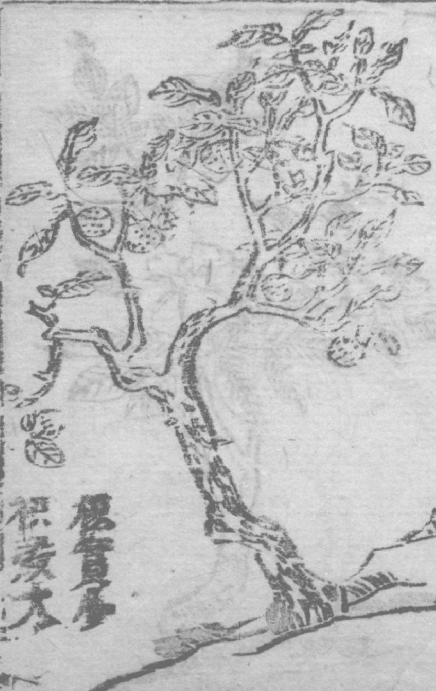 枳實小
枳殼大